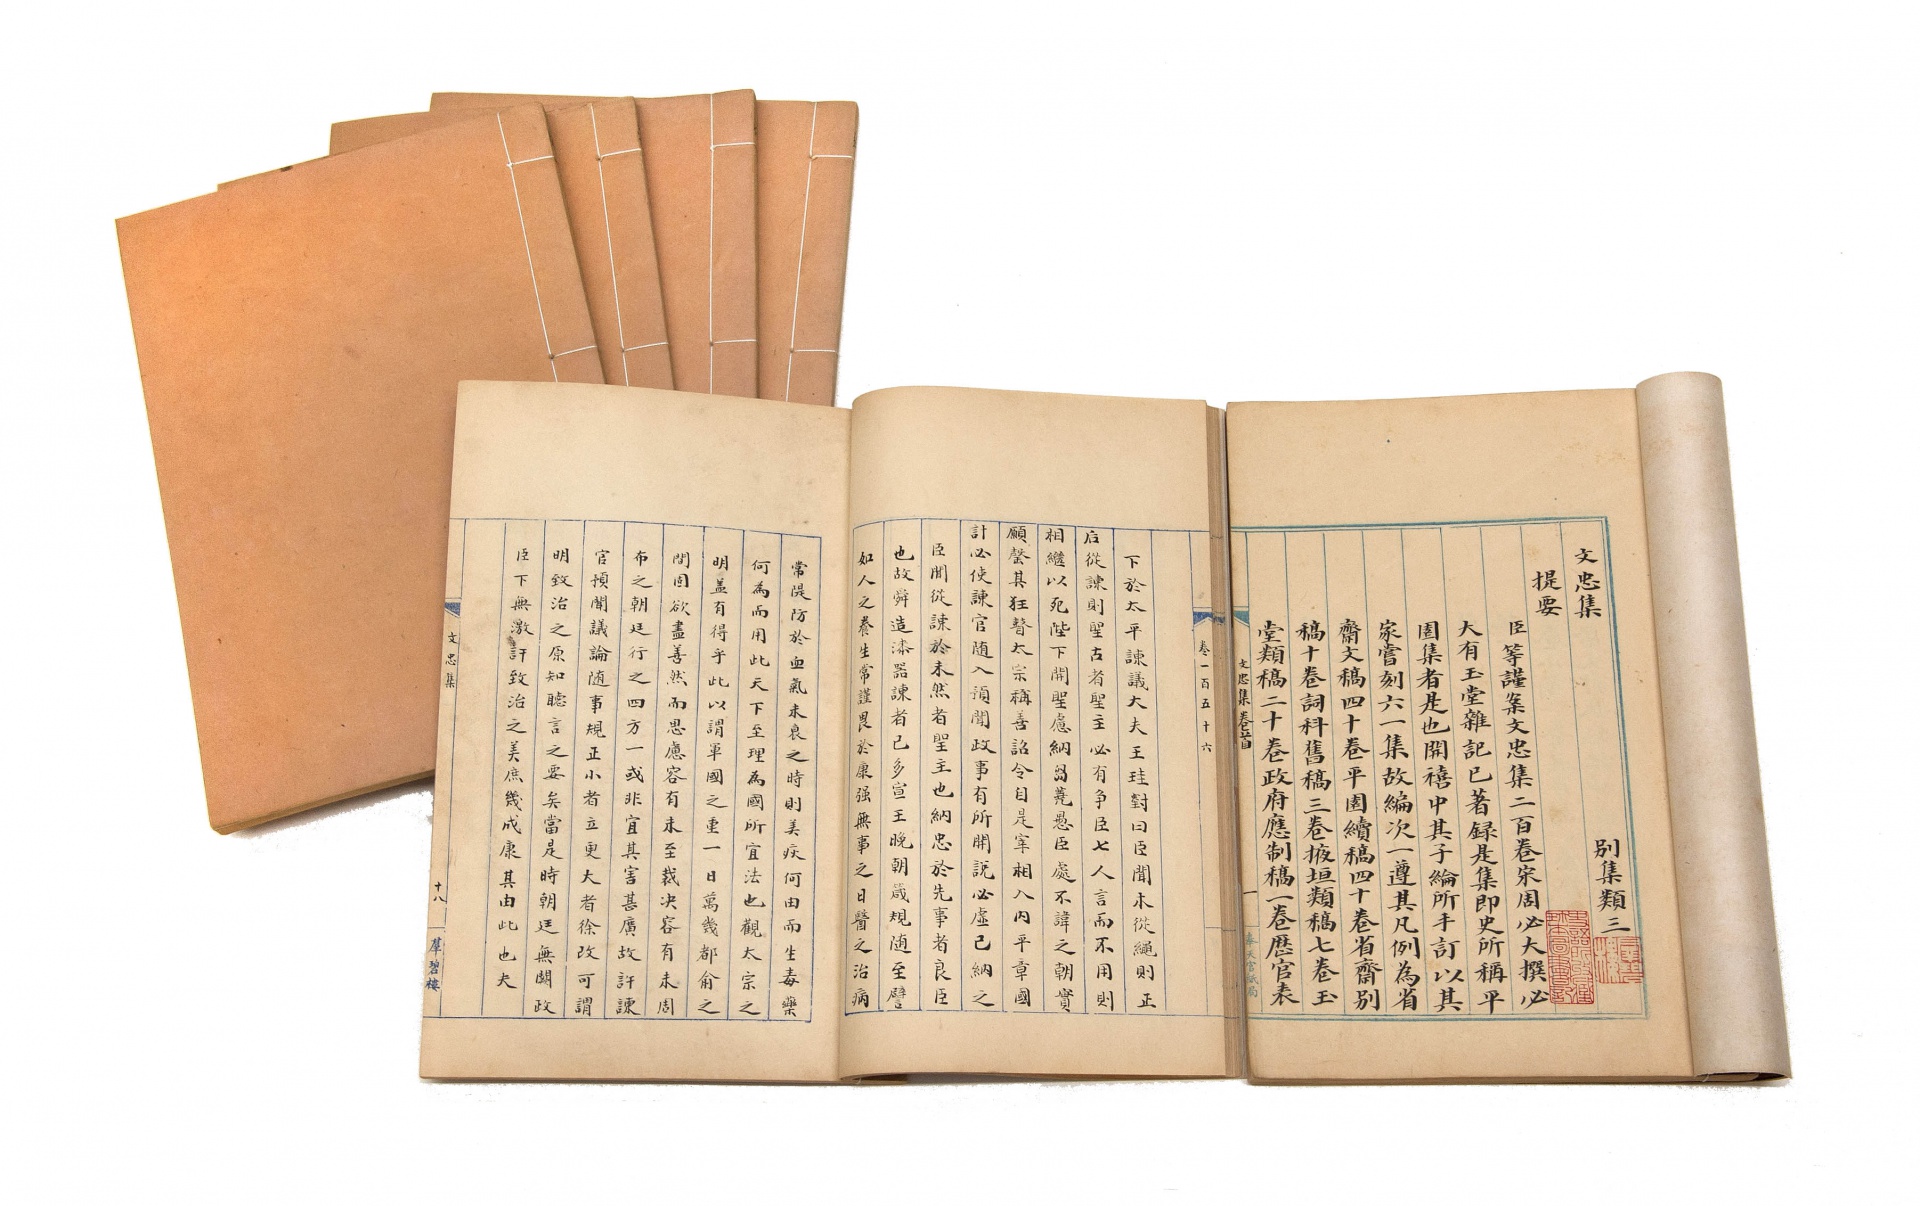 文忠集
別集類三
提要
臣等謹案文忠集二百卷宋周必大撰必
大有玉堂雜記已著録是集即史所稱平
園集者是也開禧中其子綸所手訂以其
家嘗刻六一集故編次一遵其凡例為省
齋文稿四十卷平園續稿四十卷省齋別
稿十卷詞科舊稿三卷掖垣類稿七卷玉
堂類稿二十卷政府應制稿一卷歷官表
文忠集卷首
一
卷一百五十六
下於太平諫議大夫王珪對曰臣聞木從繩則正
后從諫則聖古者聖主必有争臣七人言而不用則
相繼以死陛下開聖慮納芻蕘愚臣處不諱之朝實
願罄其狂瞽太宗稱善詔令自是宰相入内平章國
計必使諫官随入預聞政事有所開說必虚己納之
臣聞從諫於未然者聖主也納忠於先事者良臣
也故舜造漆器諫者已多宣王晚朝箴規随至譬
如人之養生常謹畏於康强無事之日醫之治病
常隄防於血氣未衰之時則美疢何由而生毒藥
何為而用此天下至理為國所宜法也觀太宗之
明盖有得乎此以謂軍國之重一日萬幾都俞之
間固欲盡善然而思慮容有未至裁決容有未周
布之朝廷行之四方一或非宜其害甚廣故許諫
官預聞議論随事規正小者立更大者徐改可謂
明致治之原知聽言之要矣當是時朝廷無闕政
臣下無激訐致治之美庶幾成康其由此也夫
文忠集
十八
羣碧樓